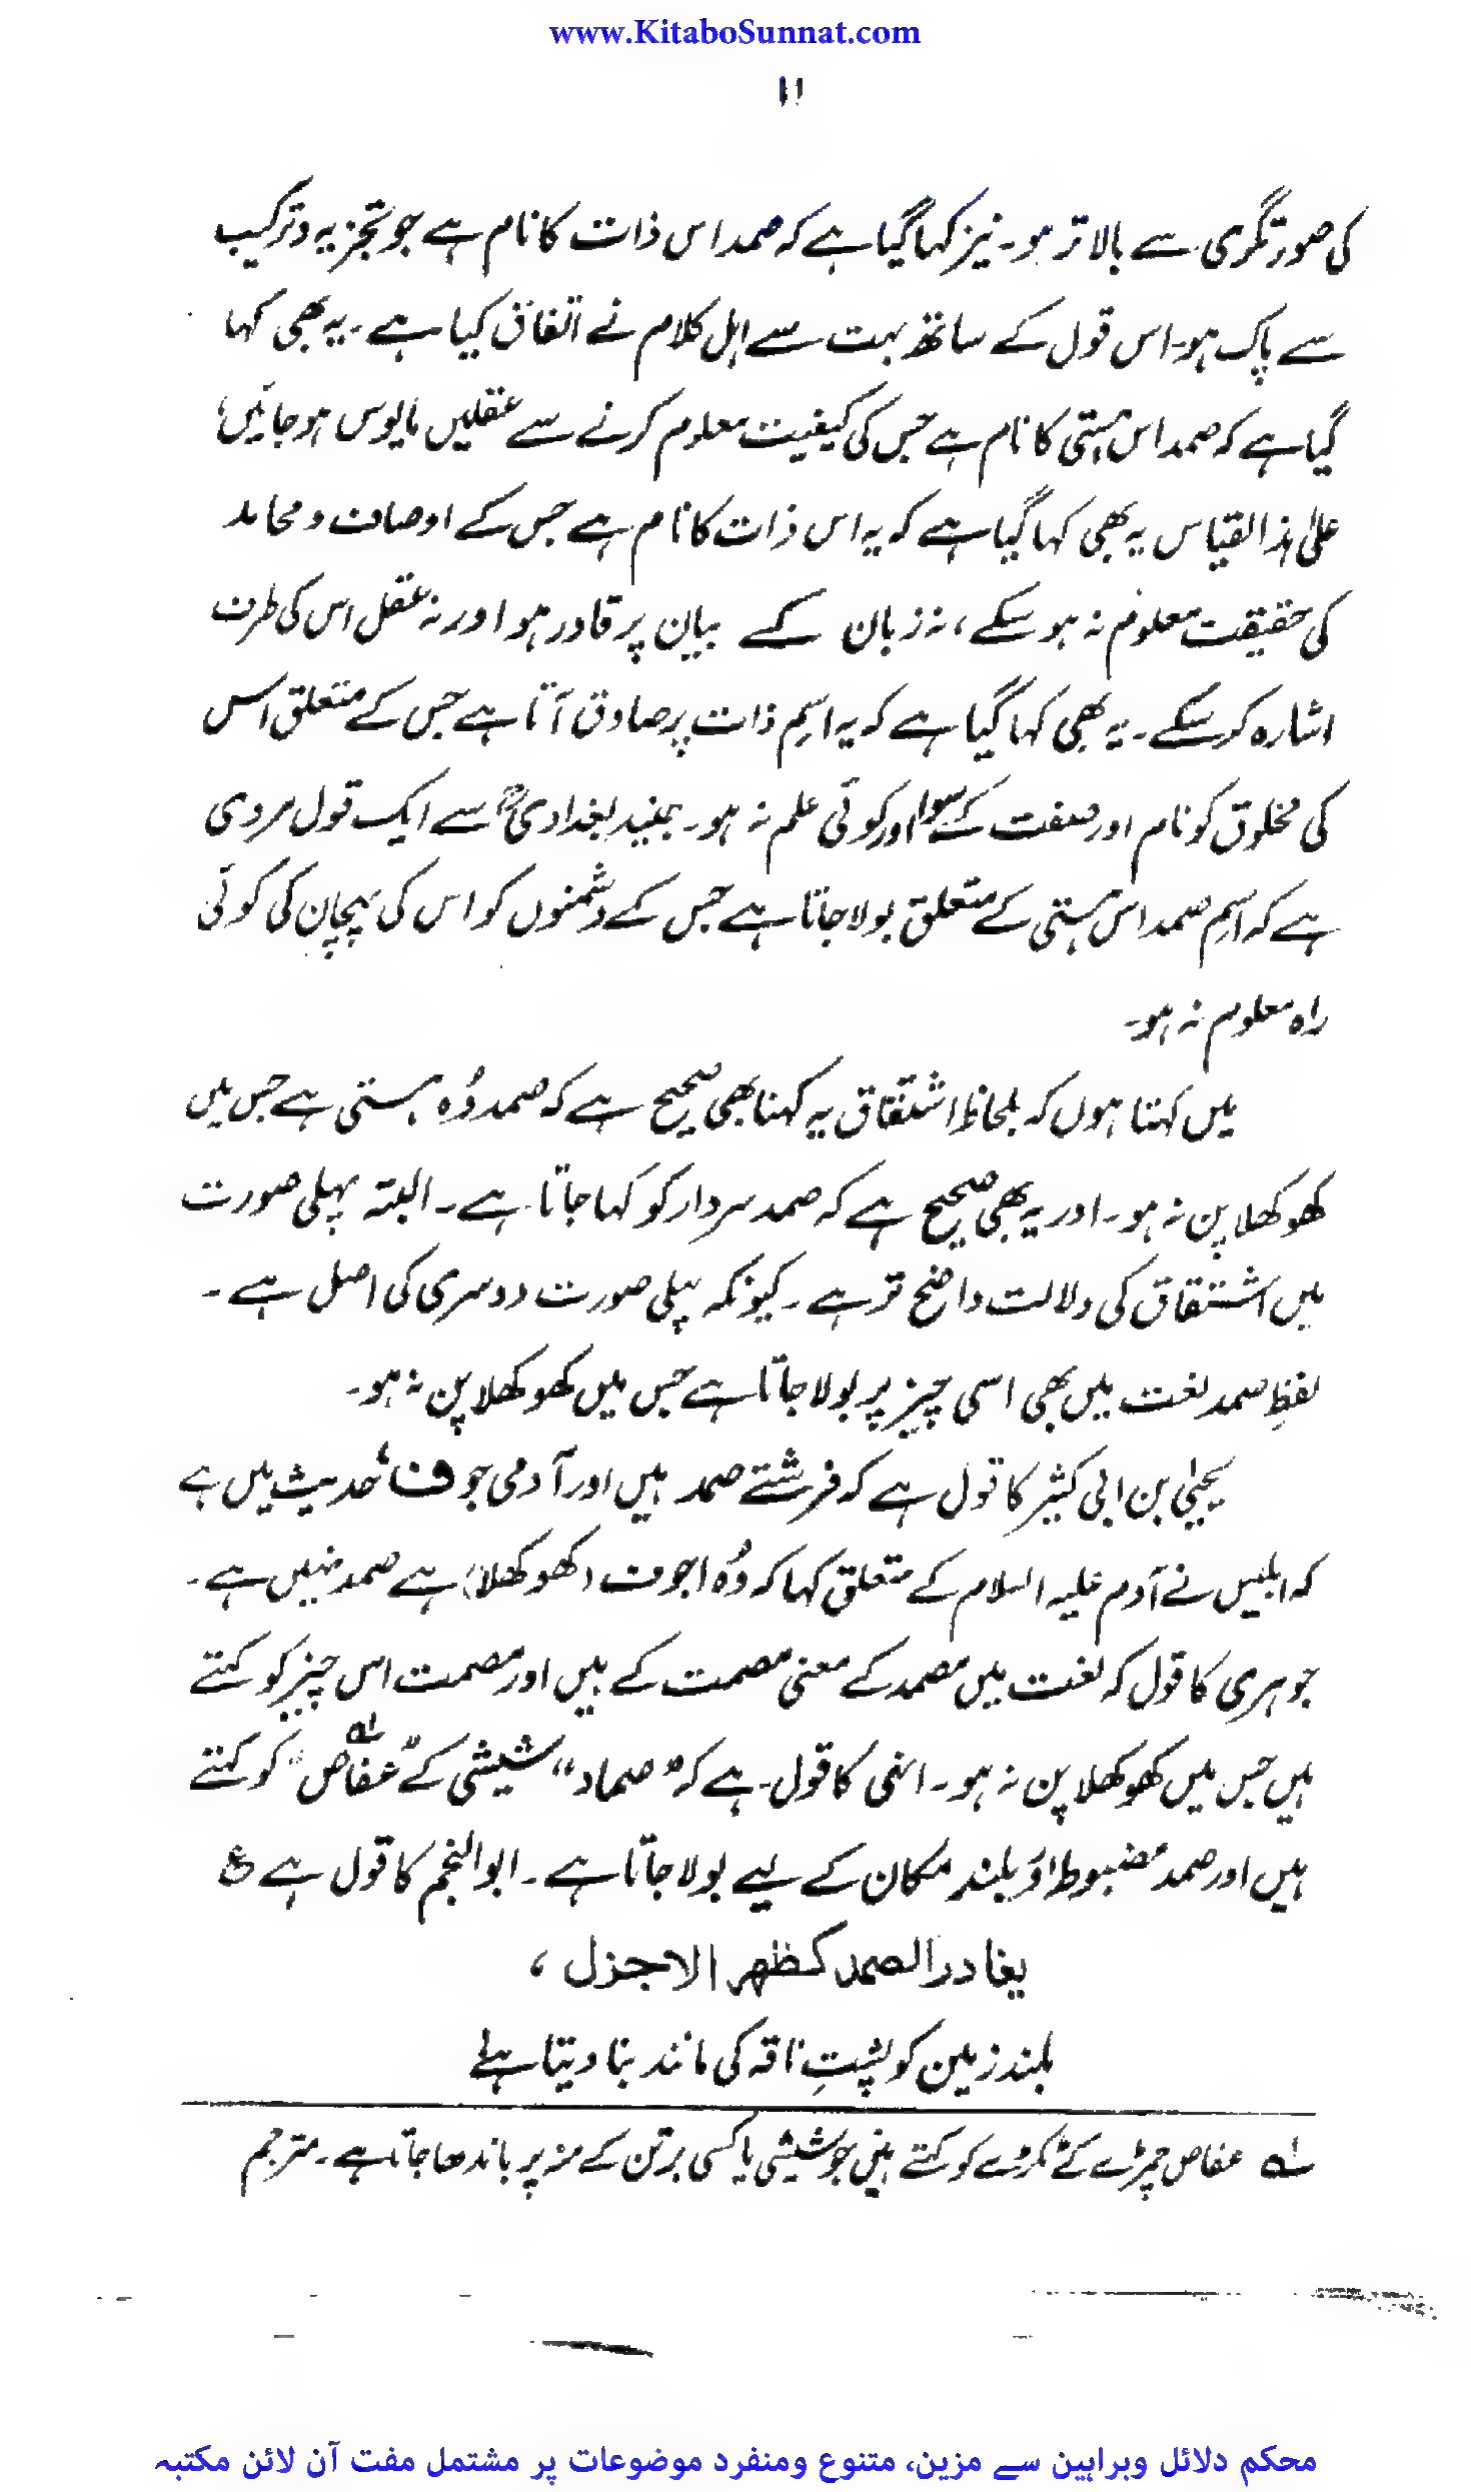 www.KitaboSunnat.com
۱۱
کی صورتگری سے بالاتر ہو۔ نیز کہا گیا ہے کہ صمد اس ذات کا نام ہے جو تجزیہ و ترکیب
سے پاک ہو۔ اس قول کے ساتھ بہت سے اہل کلام نے اتفاق کیا ہے۔ یہ بھی کہا
گیا ہے کہ صمد اس ہستی کا نام ہے جس کی کیفیت معلوم کرنے سے عقلیں مایوس ہو جائیں،
علیٰ ہذا القیاس یہ بھی کہا گیا ہے کہ یہ اس ذات کا نام ہے جس کے اوصاف و محامد
کی حقیقت معلوم نہ ہو سکے، نہ زبان کے بیان پر قادر ہو اور نہ عقل اس کی طرف
اشارہ کر سکے۔ یہ بھی کہا گیا ہے کہ یہ اسمِ ذات پر صادق آتا ہے جس کے متعلق اس
کی مخلوق کو نام اور صفت کے سوا اور کوئی علم نہ ہو۔ جنید بغدادیؒ سے ایک قول مروی
ہے کہ اسمِ صمد اس ہستی کے متعلق بولا جاتا ہے جس کے دشمنوں کو اس کی پہچان کی کوئی
راہ معلوم نہ ہو۔
میں کہتا ہوں کہ بلحاظ اشتقاق یہ کہنا بھی صحیح ہے کہ صمد وُہ ہستی ہے جس میں
کھوکھلا پن نہ ہو۔ اور یہ بھی صحیح ہے کہ صمد سردار کو کہا جاتا ہے۔ البتہ پہلی صورت
میں اشتقاق کی دلالت واضح تر ہے۔ کیونکہ پہلی صورت دوسری کی اصل ہے۔
لفظِ صمد لغت میں بھی اسی چیز پر بولا جاتا ہے جس میں کھوکھلا پن نہ ہو۔
یحییٰ بن ابی کثیر کا قول ہے کہ فرشتے صمد ہیں اور آدمی جوف، حدیث میں ہے
کہ ابلیس نے آدم علیہ السلام کے متعلق کہا کہ وُہ اجوف (کھوکھلا) ہے صمد نہیں ہے۔
جوہری کا قول کہ لغت میں مصمد کے معنی مصمت کے ہیں اور مصمت اس چیز کو کہتے
ہیں جس میں کھوکھلا پن نہ ہو۔ انہی کا قول ہے کہ "صماد" شیشی کے "عفاص" ؎۱ کو کہتے
ہیں اور صمد مضبوط اور بلند مکان کے لیے بولا جاتا ہے۔ ابو النجم کا قول ہے ع
یغادر الصمد کظهر الاجزل ،
بلند زمین کو پشتِ ناقہ کی مانند بنا دیتا ہے
؎۱ عفاص چمڑے کے ٹکڑے کو کہتے ہیں جو شیشی یا کسی برتن کے منہ پر باندھا جاتا ہے۔ مترجم
محکم دلائل وبراہین سے مزین، متنوع ومنفرد موضوعات پر مشتمل مفت آن لائن مکتبہ